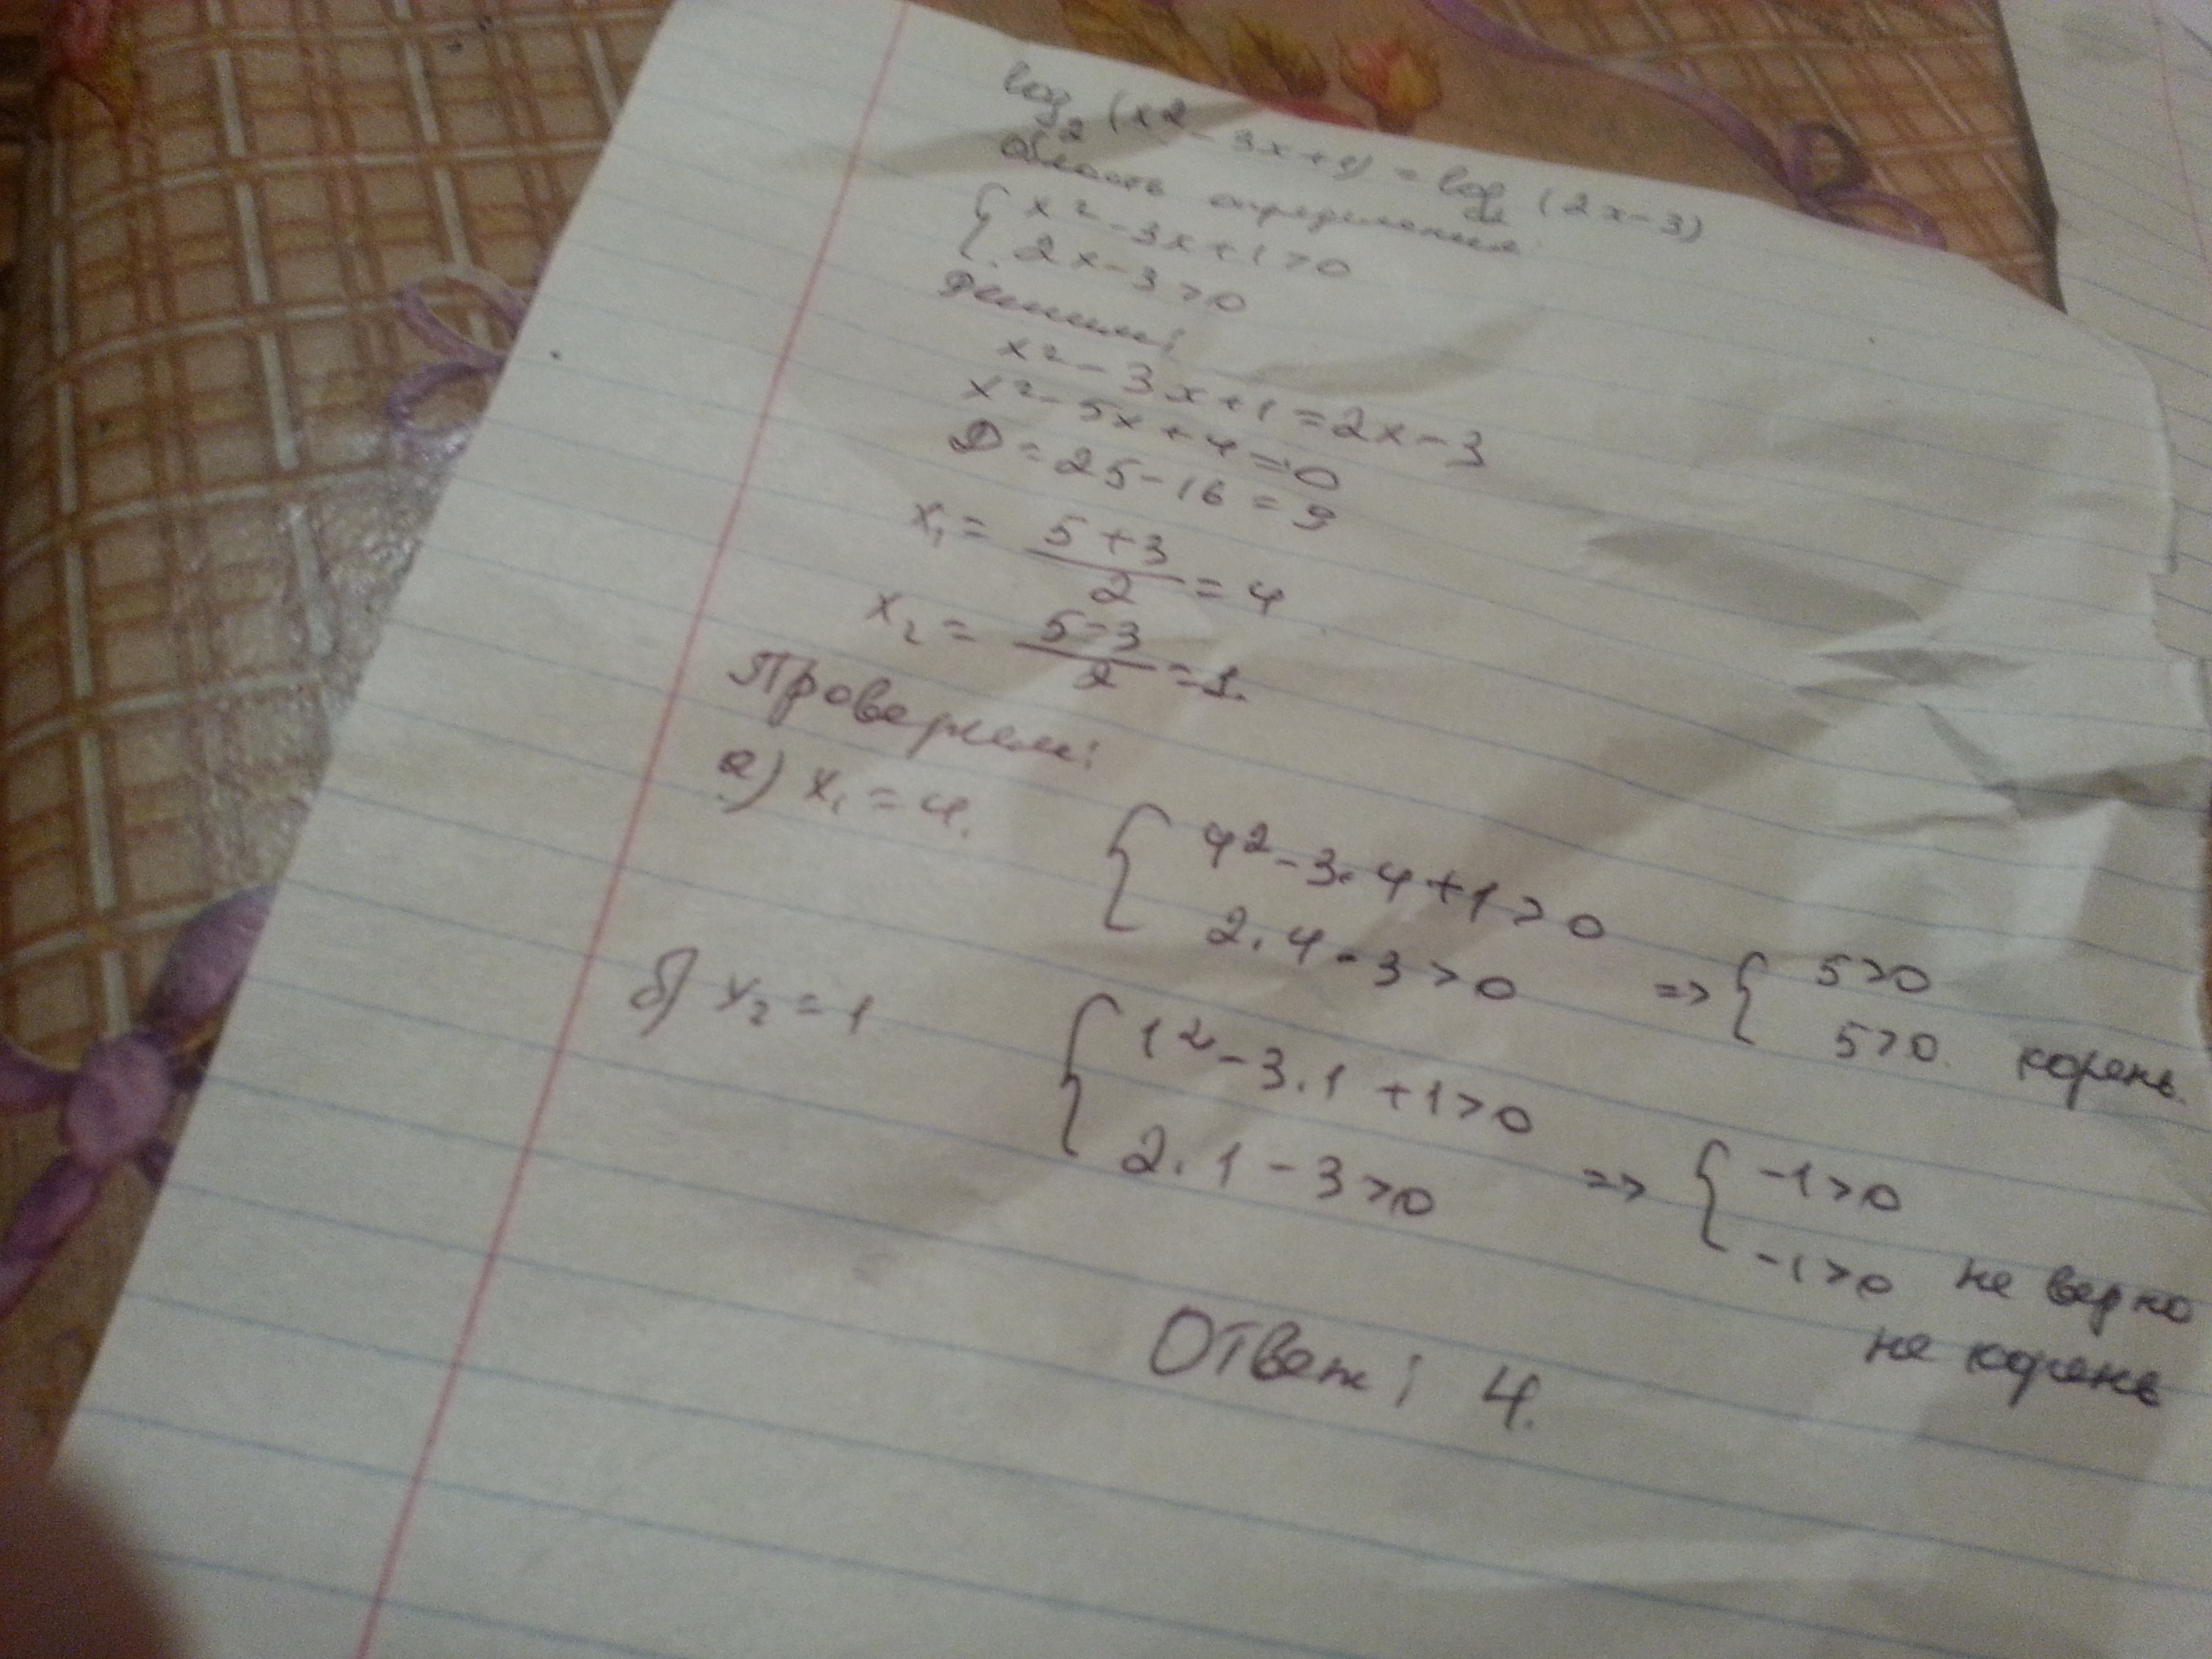 log₂ (x² - 3x + 1) = log₂ (2x - 3)
Область определения:
{ x² - 3x + 1 > 0
2x - 3 > 0
Решим:
x² - 3x + 1 = 2x - 3
x² - 5x + 4 = 0
D = 25 - 16 = 9
x₁ = (5 + 3)/2 = 4
x₂ = (5 - 3)/2 = 1.
Проверяем:
а) x₁ = 4. { 4² - 3·4 + 1 > 0
2·4 - 3 > 0 => { 5 > 0
5 > 0. корень.
б) x₂ = 1 { 1² - 3·1 + 1 > 0
2·1 - 3 > 0 => { -1 > 0
-1 > 0 не верно
не корень
Ответ: 4.